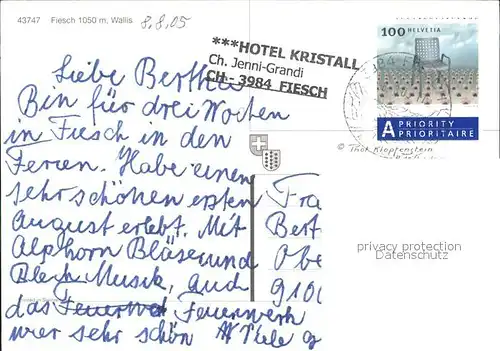 43747 Fiesch 1050 m, Wallis
8.8.05
***HOTEL KRISTALL
Ch. Jenni-Grandi
CH - 3984 FIESCH
100 HELVETIA
A PRIORITY
PRIORITAIRE
© Thor Klopfenstein
Liebe Berthe
Bin für drei Wochen
in Fiesch in den
Ferien. Habe einen
sehr schönen ersten
August erlebt. Mit
Alphorn Bläser und
Blech Musik, auch
das Feuerwerk Feuerwerk
war sehr schön Viele g
Fra
Bert
Obe
9100
privacy protection
Datenschutz